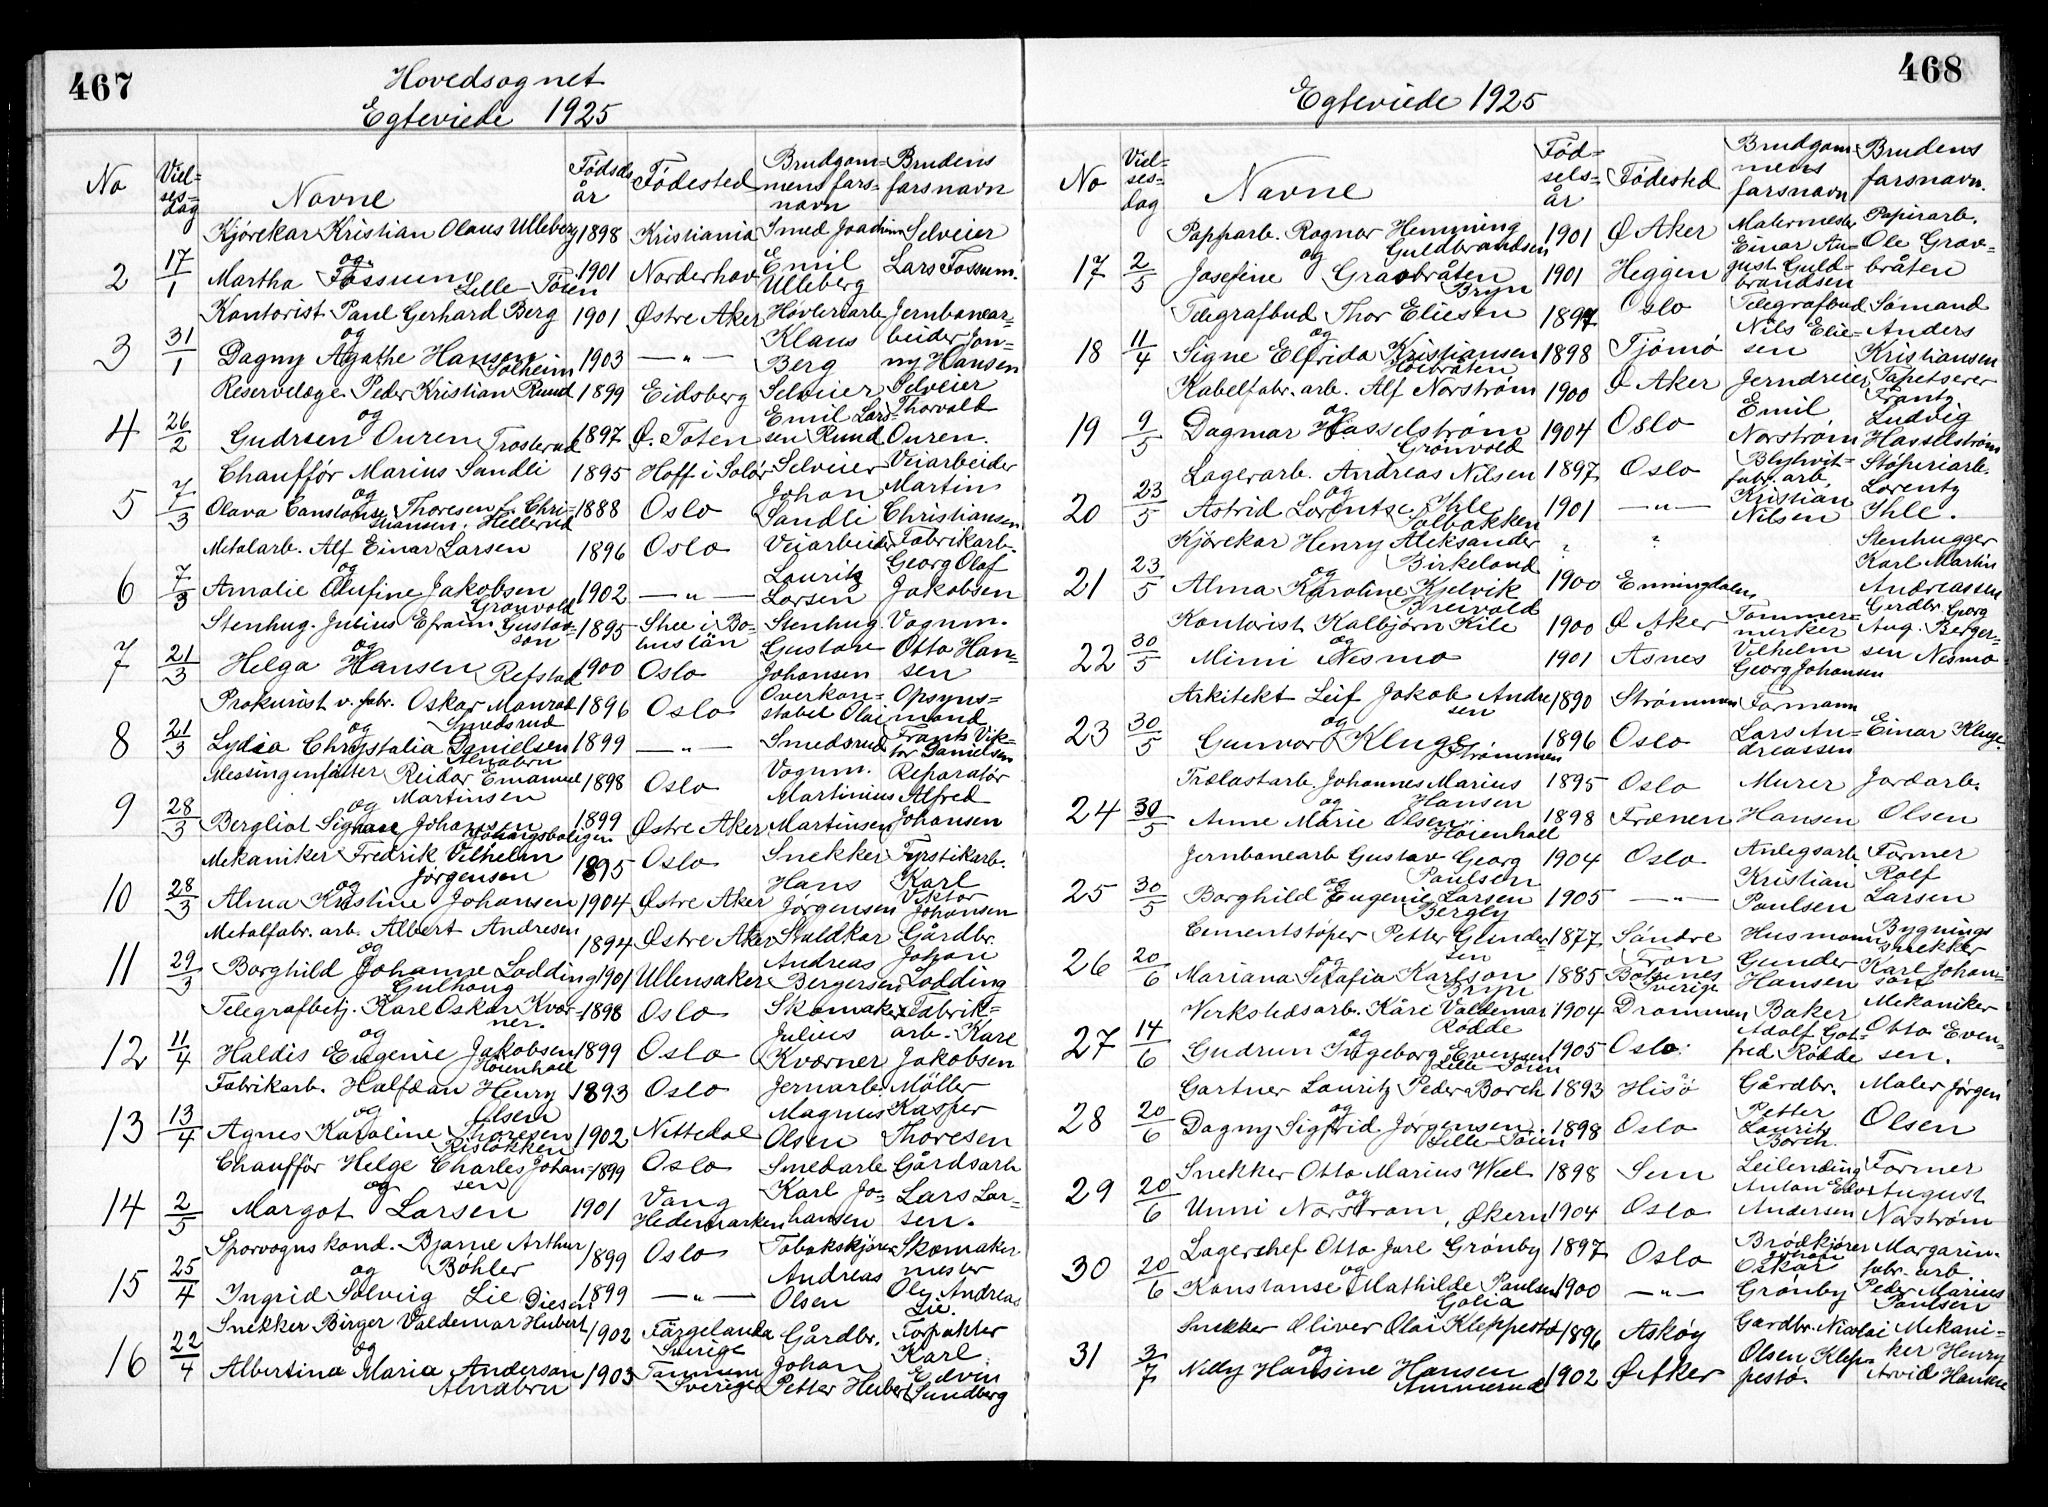 467
Hovedsognet
Egteviede 1925
No Viel-sesdag Navne Fødselsår Fødested Brudgommens farsnavn Brudens farsnavn
2 17/1 Kjørekar Kristian Olaus Ulleberg 1898 Kristiania Smed Joachim Emil Ulleberg Selveier Lars Fossum.
og
Martha Fossum Lille Tøien 1901 Norderhov
3 31/1 Kontorist Paul Gerhard Berg 1901 Østre Aker Høvleriarb. Klaus Berg Jernbanearbeider Jonny Hansen
og
Dagny Agathe Hansen Solheim 1903 —〃—
4 26/2 Reservelæge Peder Kristian Ruud 1899 Eidsberg Selveier Emil Larsen Ruud Selveier Thorvald Ouren.
og
Gudrun Ouren Trosterud 1897 Ø. Toten
5 7/3 Chauffør Marius Sandli 1895 Hoff i Solør Selveier Johan Sandli Veiarbeider Martin Christiansen
og
Olava Constance Thoresen f. Christiansen. Hellerud 1888 Oslo
6 7/3 Metalarb. Alf Einar Larsen 1896 Oslo Veiarbeider Lauritz Larsen Fabrikarb. Georg Olaf Jakobsen
og
Amalie Olufine Jakobsen Grønvold 1902 —〃—
7 21/3 Stenhug. Julius Efraim Gustavson 1895 Skee i Bohuslän Stenhug. Gustav Johansen Vognm. Otto Hansen
og
Helga Hansen Refstad 1900 Oslo
8 21/3 Prokurist v. fabr. Oskar Monrad Smedsrud 1896 Oslo Overkonstabel Olai Smedsrud Opsynsmand Frants Viktor Danielsen
og
Lydia Chrystalia Danielsen Alnabru 1899 —〃—
9 28/3 Messingenfatter Reidar Emanuel Martinsen 1898 Oslo Vognm. Martinius Martinsen Reparatør Alfred Johansen
og
Bergliot Signore Johansen 1899 Østre Aker
10 28/3 Mekaniker Fredrik Vilhelm Jørgensen 1895 Oslo Snekker Hans Jørgensen Fyrstikarb. Karl Viktor Johansen
og
Alma Kristine Johansen 1904 Østre Aker
11 29/3 Metalfabr. arb. Albert Andresen 1894 Østre Aker Staldkar Andreas Bergersen Gårdbr. Johan Lodding
og
Borghild Johanne Lodding Gulhaug 1901 Ullensaker
12 11/4 Telegrafbetj. Karl Oskar Kværner. 1898 Oslo Skomaker Julius Kværner Fabrikarb. Karl Jakobsen
og
Haldis Eugenie Jakobsen Høienhall 1899 Oslo
13 13/4 Fabrikarb. Halfdan Henry Olsen 1893 Oslo Jernarb. Magnus Olsen Møller Kasper Thoresen
og
Agnes Karoline Thoresen Risløkken 1902 Nittedal
14 2/5 Chauffør Helge Charles Johansen 1899 Oslo Smedarb. Karl Johansen Gårdsarb Lars Larsen.
og
Margot Larsen 1901 Vang Hedemarken
15 25/4 Sporvognskond. Bjarne Arthur Bøhler 1899 Oslo Tobakskjører Andreas Olsen Skomakermester Ole Andreas Lie.
og
Ingrid Solveig Lie Disen 1899 —〃—
16 22/4 Snekker Birger Valdemar Hubert 1902 Färgelanda Sverige Gårdbr. Johan Petter Hubert Forpakter Karl Edvin Sundberg
og
Albertina Maria Anderson Alnabru 1903 Tanum Sverige
468
Egteviede 1925
No Viel-sesdag Navne Fødselsår Fødested Brudgommens farsnavn Brudens farsnavn.
17 2/5 Papparb. Ragnar Hemming Guldbrandsen 1901 Ø Aker Malermester Einar August Guldbrandsen Papirarb. Ole Gravbråten
og
Josefine Gravbråten Bryn 1901 Heggen
18 11/4 Telegrafbud Thor Eliesen 1897 Oslo Telegrafbud Nils Eliesen Sømand Anders Kristiansen
og
Signe Elfrida Kristiansen Høibråten 1898 Tjømø
19 9/5 Kabelfabr. arb. Alf Norstrøm 1900 Ø Aker Jerndreier Emil Norstrøm Tapetserer Frantz Ludvig Hasselstrøm
og
Dagmar Hasselstrøm Grønvold 1904 Oslo
20 23/5 Lagerarb. Andreas Nilsen 1897 Oslo Blyhvitfabr. arb. Kristian Nilsen Støperiarb. Lorentz Ihle.
og
Astrid Lorentze Ihle Solbakken 1901 —〃—
21 23/5 Kjørekar Henry Aleksander Birkeland ? ? Stenhugger Karl Martin Andreassen
og
Alma Karoline Kjelvik Breivold 1900 Enningdalen
22 30/5 Kontorist Kolbjørn Kile 1900 Ø Aker Tømmermerker Vilhelm Georg Johansen Gardbr. Georg Aug. Bergersen Nesmo
og
Mimi Nesmo 1901 Åsnes
23 30/5 Arkitekt Leif Jakob Andresen 1890 Strømmen Formann Lars Andreassen Einar Kluge.
og
Gunvor Kluge Strømmen 1896 Oslo
24 30/5 Trælastarb. Johannes Marius Hansen 1895 Oslo Murer Hansen Jordarb. Olsen
og
Anne Marie Olsen Høienhall 1898 Frænen
25 30/5 Jernbanearb Gustav Georg Paulsen 1904 Oslo Anlegsarb. Kristian Paulsen Former Rolf Larsen
og
Borghild Eugenie Larsen Bergly 1905 —〃—
26 20/6 Cementstøper Petter Gundersen 1877 Søndre Fron Husmann Gunder Hansen Bygningssnekker Karl Johanson
og
Mariana Serafia Karlson Bryn 1885 Sverige
27 14/6 Verkstedsarb. Kåre Valdemar Rødde 1904 Drammen Baker Adolf Gotfred Rødde Mekaniker Otto Evensen.
og
Gudrun Ingeborg Evensen Lille-Tøien 1905 Oslo.
28 20/6 Gartner Lauritz Peder Borch 1893 Hisö Gårdbr. Petter Lauritz Borch. Maler Jørgen Olsen
og
Dagny Sigfrid Jørgensen. Lille Tøien 1898 Oslo
29 20/6 Snekker Otto Marius Weel 1898 Sem Leilending Anton Edv. Andersen Former August Norstrøm
og
Unni Norstrøm, Økern 1904 Oslo
30 20/6 Lagerchef Otto Jarl Grønby 1897 Oslo Brødkjører Johan Oskar Grønby Margarinfabr. arb Peder Marius Paulsen
og
Konstanse Mathilde Paulsen Golia 1900 —〃—
31 3/7 Snekker Oliver Olai Kleppestø 1896 Askøy Gardbr. Nicolai Olsen Kleppestø. Mekaniker Henry Arvid Hansen
og
Nelly Hansine Hansen Ammerud 1902 Ø Aker